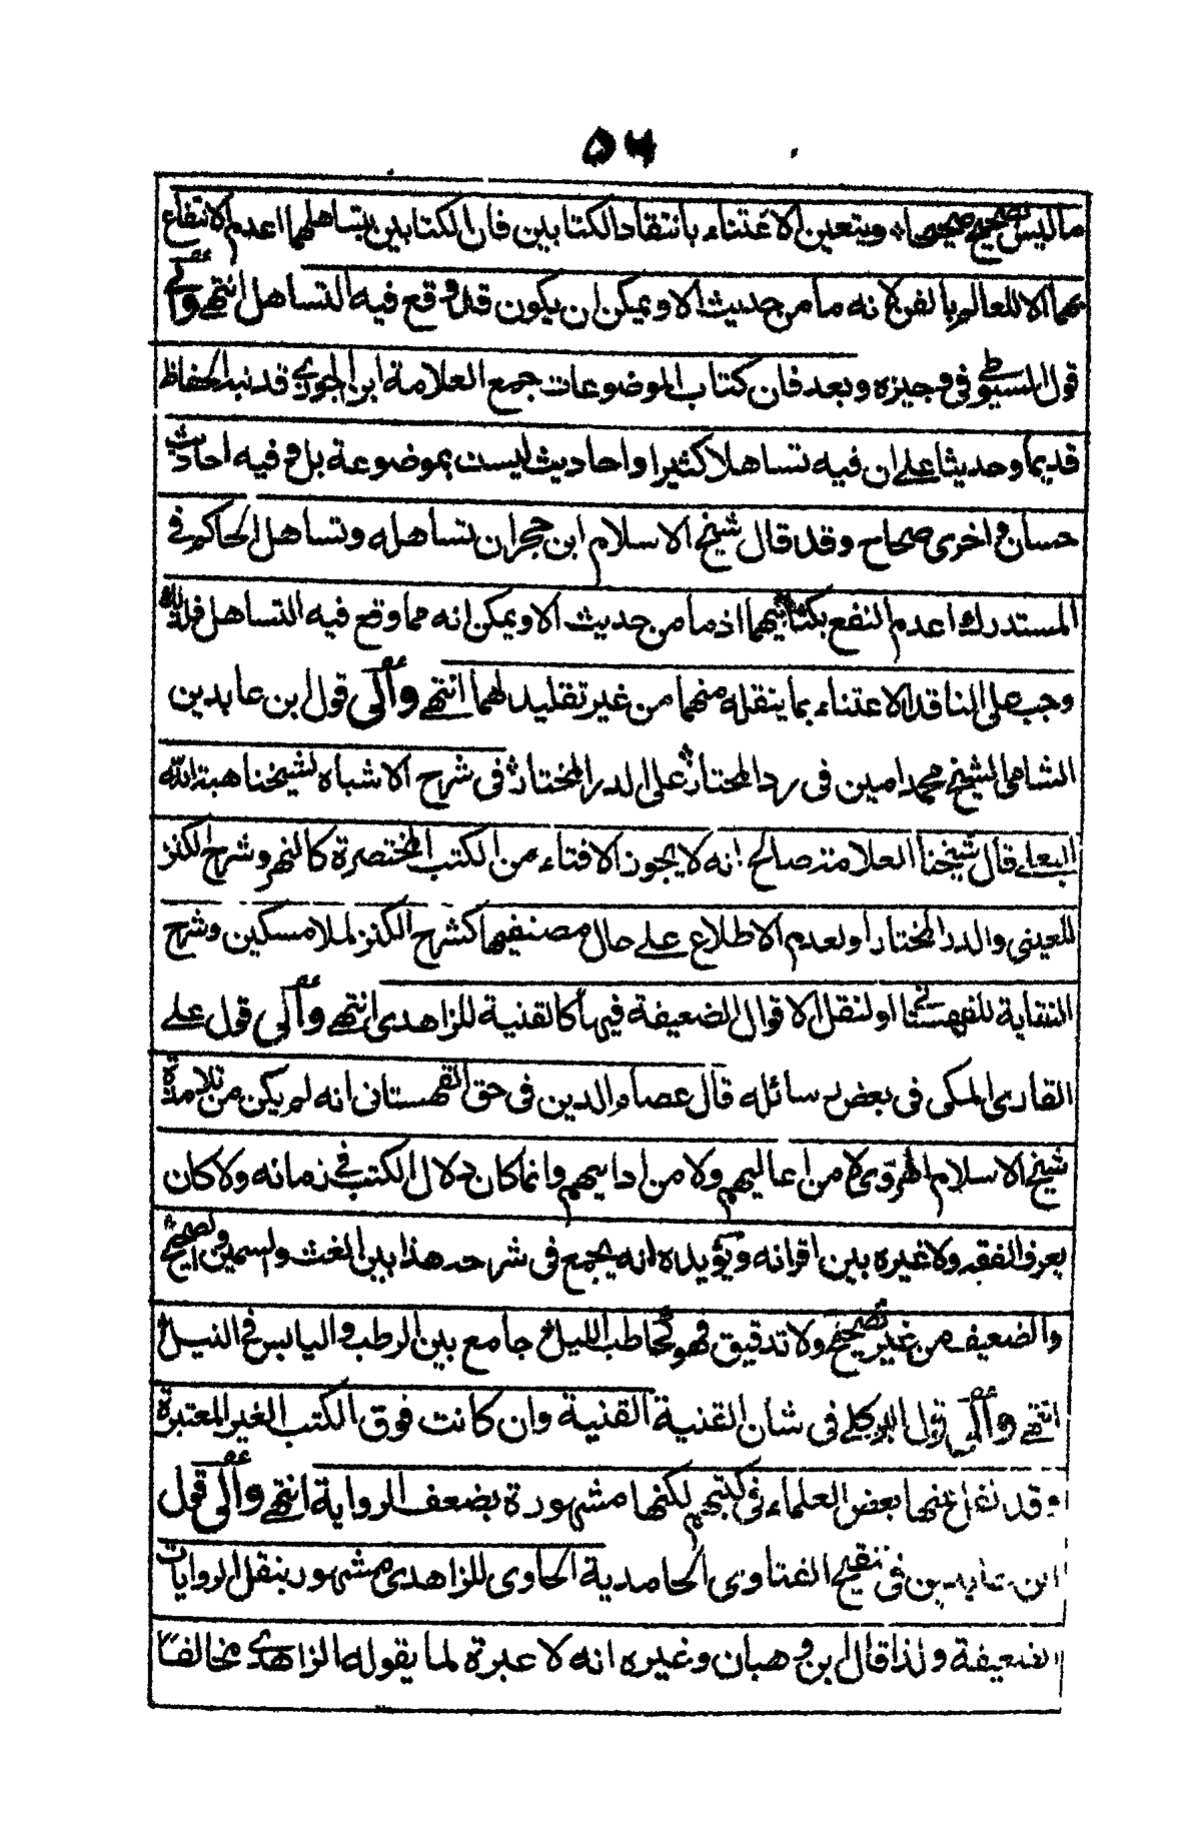 ۵۶
ما ليس بصحيح صحيحا، ويتعين الاعتناء بانتقاد الكتابين فان الكتابين بتساهلهما اعدم الانتفاع
بهما الا للعالم بالفن لانه ما من حديث الا ويمكن ان يكون قد وقع فيه التساهل انتهى والى
قول السيوطى فى وجيزه وبعد فان كتاب الموضوعات جمع العلامة ابن الجوزى قد نبه الحفاظ
قديما وحديثا على ان فيه تساهلا كثيرا واحاديث ليست بموضوعة بل وفيه احاديث
حسان واخرى صحاح وقد قال شيخ الاسلام ابن حجر ان تساهله وتساهل الحاكم فى
المستدرك اعدم النفع بكتابيهما اذ ما من حديث الا ويمكن انه مما وقع فيه التساهل فلذلك
وجب على الناقد الاعتناء بما ينقله منهما من غير تقليد لهما انتهى والى قول ابن عابدين
الشامى الشيخ محمد امين فى رد المحتار على الدر المختار فى شرح الاشباه لشيخنا هبة الله
البعلى قال شيخنا العلامة صالح انه لا يجوز الافتاء من الكتب المختصرة كالنهر وشرح الكنز
للعينى والدر المختار او لعدم الاطلاع على حال مصنفيها كشرح الكنز لملا مسكين وشرح
النقاية للقهستانى او لنقل الاقوال الضعيفة فيها كالقنية للزاهدى انتهى والى قول على
القارى المكى فى بعض رسائله قال عصام الدين فى حق القهستانى انه لم يكن من تلامذة
شيخ الاسلام الهروى لا من اعاليهم ولا من ادانيهم وانما كان دلال الكتب فى زمانه ولا كان
يعرف الفقه ولا غيره بين اقرانه ويؤيده انه يجمع فى شرحه هذا بين الغث والسمين والصحيح
والضعيف من غير تصحيح ولا تدقيق فهو كحاطب الليل جامع بين الرطب واليابس فى النيل
انتهى والى قول البركلى فى شان القنية القنية وان كانت فوق الكتب الغير المعتبرة
وقد نقل عنها بعض العلماء فى كتبهم لكنها مشهورة بضعف الرواية انتهى والى قول
ابن عابدين فى تنقيح الفتاوى الحامدية الحاوى للزاهدى مشهور بنقل الروايات
الضعيفة ولذا قال ابن وهبان وغيره انه لا عبرة لما يقوله الزاهدى مخالفا